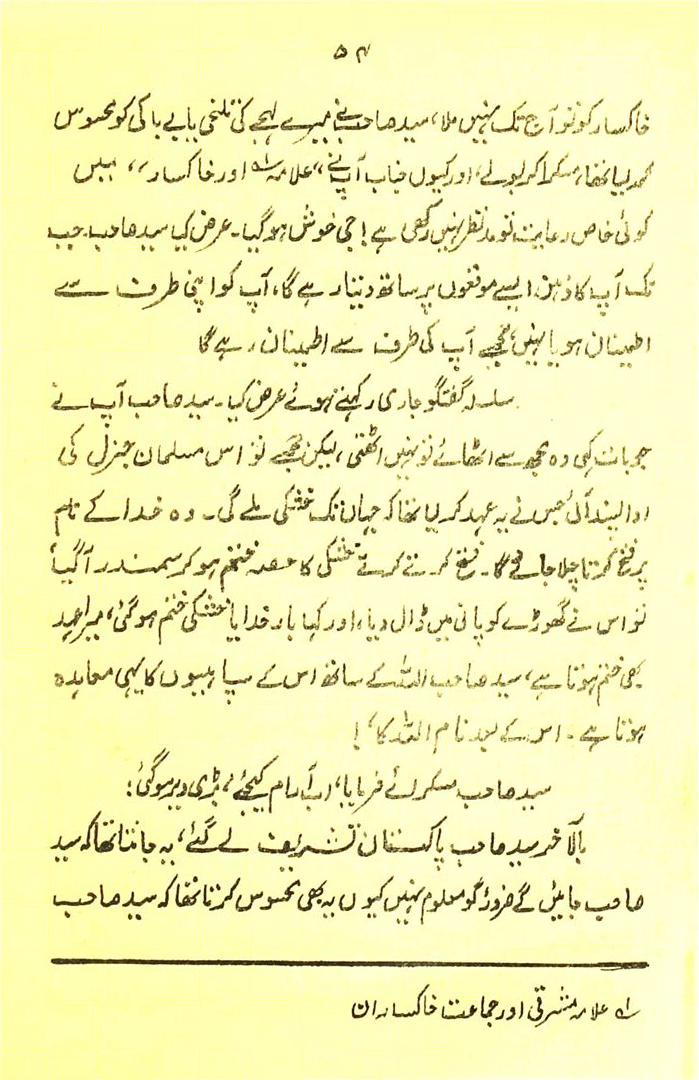 ۵۴
خاکسار کو تو آج تک نہیں ملا، سید صاحب نے میرے لہجے کی تلخی یا بے باکی کو محسوس
کر لیا تھا، مسکرا کر بولے، اور کیوں جناب آپ نے ”علامہ لہ اور خاکسار“ میں
کوئی خاص رعایت تو مدنظر نہیں رکھی ہے! جی خوش ہو گیا۔ عرض کیا سید صاحب جب
تک آپ کا ذہن ایسے موقعوں پر ساتھ دیتا رہے گا، آپ کو اپنی طرف سے
اطمینان ہو یا نہیں مجھے آپ کی طرف سے اطمینان رہے گا
سلسلہ گفتگو جاری رکھتے ہوئے عرض کیا۔ سید صاحب آپ نے
جو بات کہی وہ مجھ سے اٹھائے تو نہیں اٹھتی، لیکن مجھے تو اس مسلمان جنرل کی
ادا پسند آئی جس نے یہ عہد کر لیا تھا کہ جہاں تک خشکی ملے گی۔ وہ خدا کے نام
پر فتح کرتا چلا جائے گا۔ فتح کرتے کرتے خشکی کا حصہ ختم ہو کر سمندر آ گیا
تو اس نے گھوڑے کو پانی میں ڈال دیا، اور کہا بار خدایا خشکی ختم ہو گئی، میرا عہد
بھی ختم ہوتا ہے، سید صاحب اللہ کے ساتھ اس کے سپاہیوں کا یہی معاہدہ
ہوتا ہے۔ اس کے بعد نام اللہ کا،!
سید صاحب مسکرائے فرمایا، اب آرام کیجئے، بڑی دیر ہو گئی:
بالآخر سید صاحب پاکستان تشریف لے گئے، یہ جانتا تھا کہ سید
صاحب جائیں گے ضرور گو معلوم نہیں کیوں یہ بھی محسوس کرتا تھا کہ سید صاحب
لہ علامہ مشرقی اور جماعت خاکساران